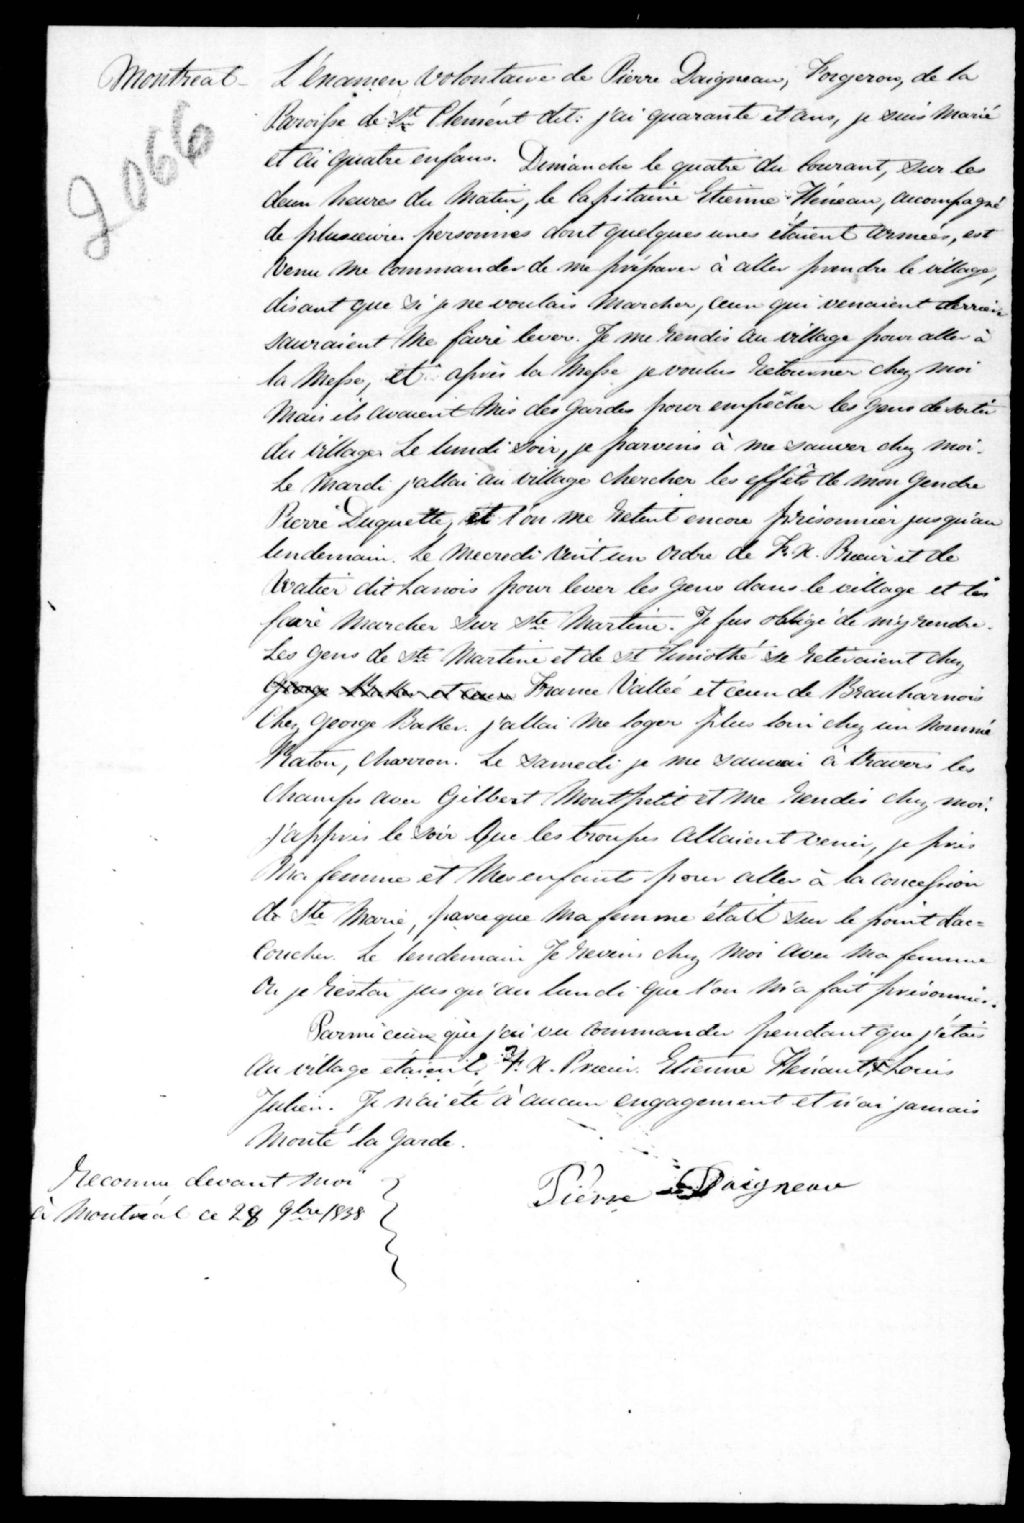 Montreal - L'éxamen Volontaire de Pierre Daigneau, Forgeron, de la
2066
Paroisse de St Clement dit: j'ai quarante et ans, je suis Marié
et ai quatre enfans. Dimanche le quatre du Courant, sur les
deux heures du Matin, le Capitaine Etienne Héneau, accompagné
de plusieurs personnes dont quelques unes étaient armées, est
venu me commander de me préparer à aller prendre le village,
disant que si je ne voulais Marcher, ceux qui venaient derrière
sauraient Me faire lever. Je me rendis au village pour aller à
la Messe, et après la Messe je voulus retourner chez moi
Mais ils avaient Mis des gardes pour empêcher les gens de sortir
du village. Le lundi soir, je parvins à me sauver chez moi.
Le Mardi j'allai au village chercher les effêts de mon gendre
Pierre Duquette, et l'on me retint encore prisonnier jusqu'au
lendemain. Le Mecredi vint un ordre de F. X. Prieur et de
Watier dit Lanois pour lever les gens dans le village et les
faire Marcher sur Ste Martine. Je fus obligé de m'y rendre.
Les gens de Ste Martine et de St Timothé se retiraient chez
George Baker et ceux France Vallée et ceux de Beauharnois
Chez George Baker. J'allai Me loger plus loin chez un Nommé
Raton, Charron. Le samedi je me sauvai à travers les
Champs avec Gilbert Montpetit et Me rendis chez moi.
J'appris le soir que les troupes allaient venir, je pris
Ma femme et Mes enfants pour aller à la concession
de Ste Marie, parceque Ma femme était sur le point d'ac=
coucher. Le lendemain Je revins chez Moi avec Ma femme
ou je restai jusqu'au lundi que l'on M'a fait prisonnier.
Parmi ceux que j'ai vu commander pendant que j'étais
au village étaient F. X. Prieur. Etienne Hénault, & Louis
Julien. Je n'ai été à aucun engagement et n'ai jamais
Monté la Garde.
Reconnu devant Moi
à Montréal ce 28 9bre 1838
Pierre Daigneau